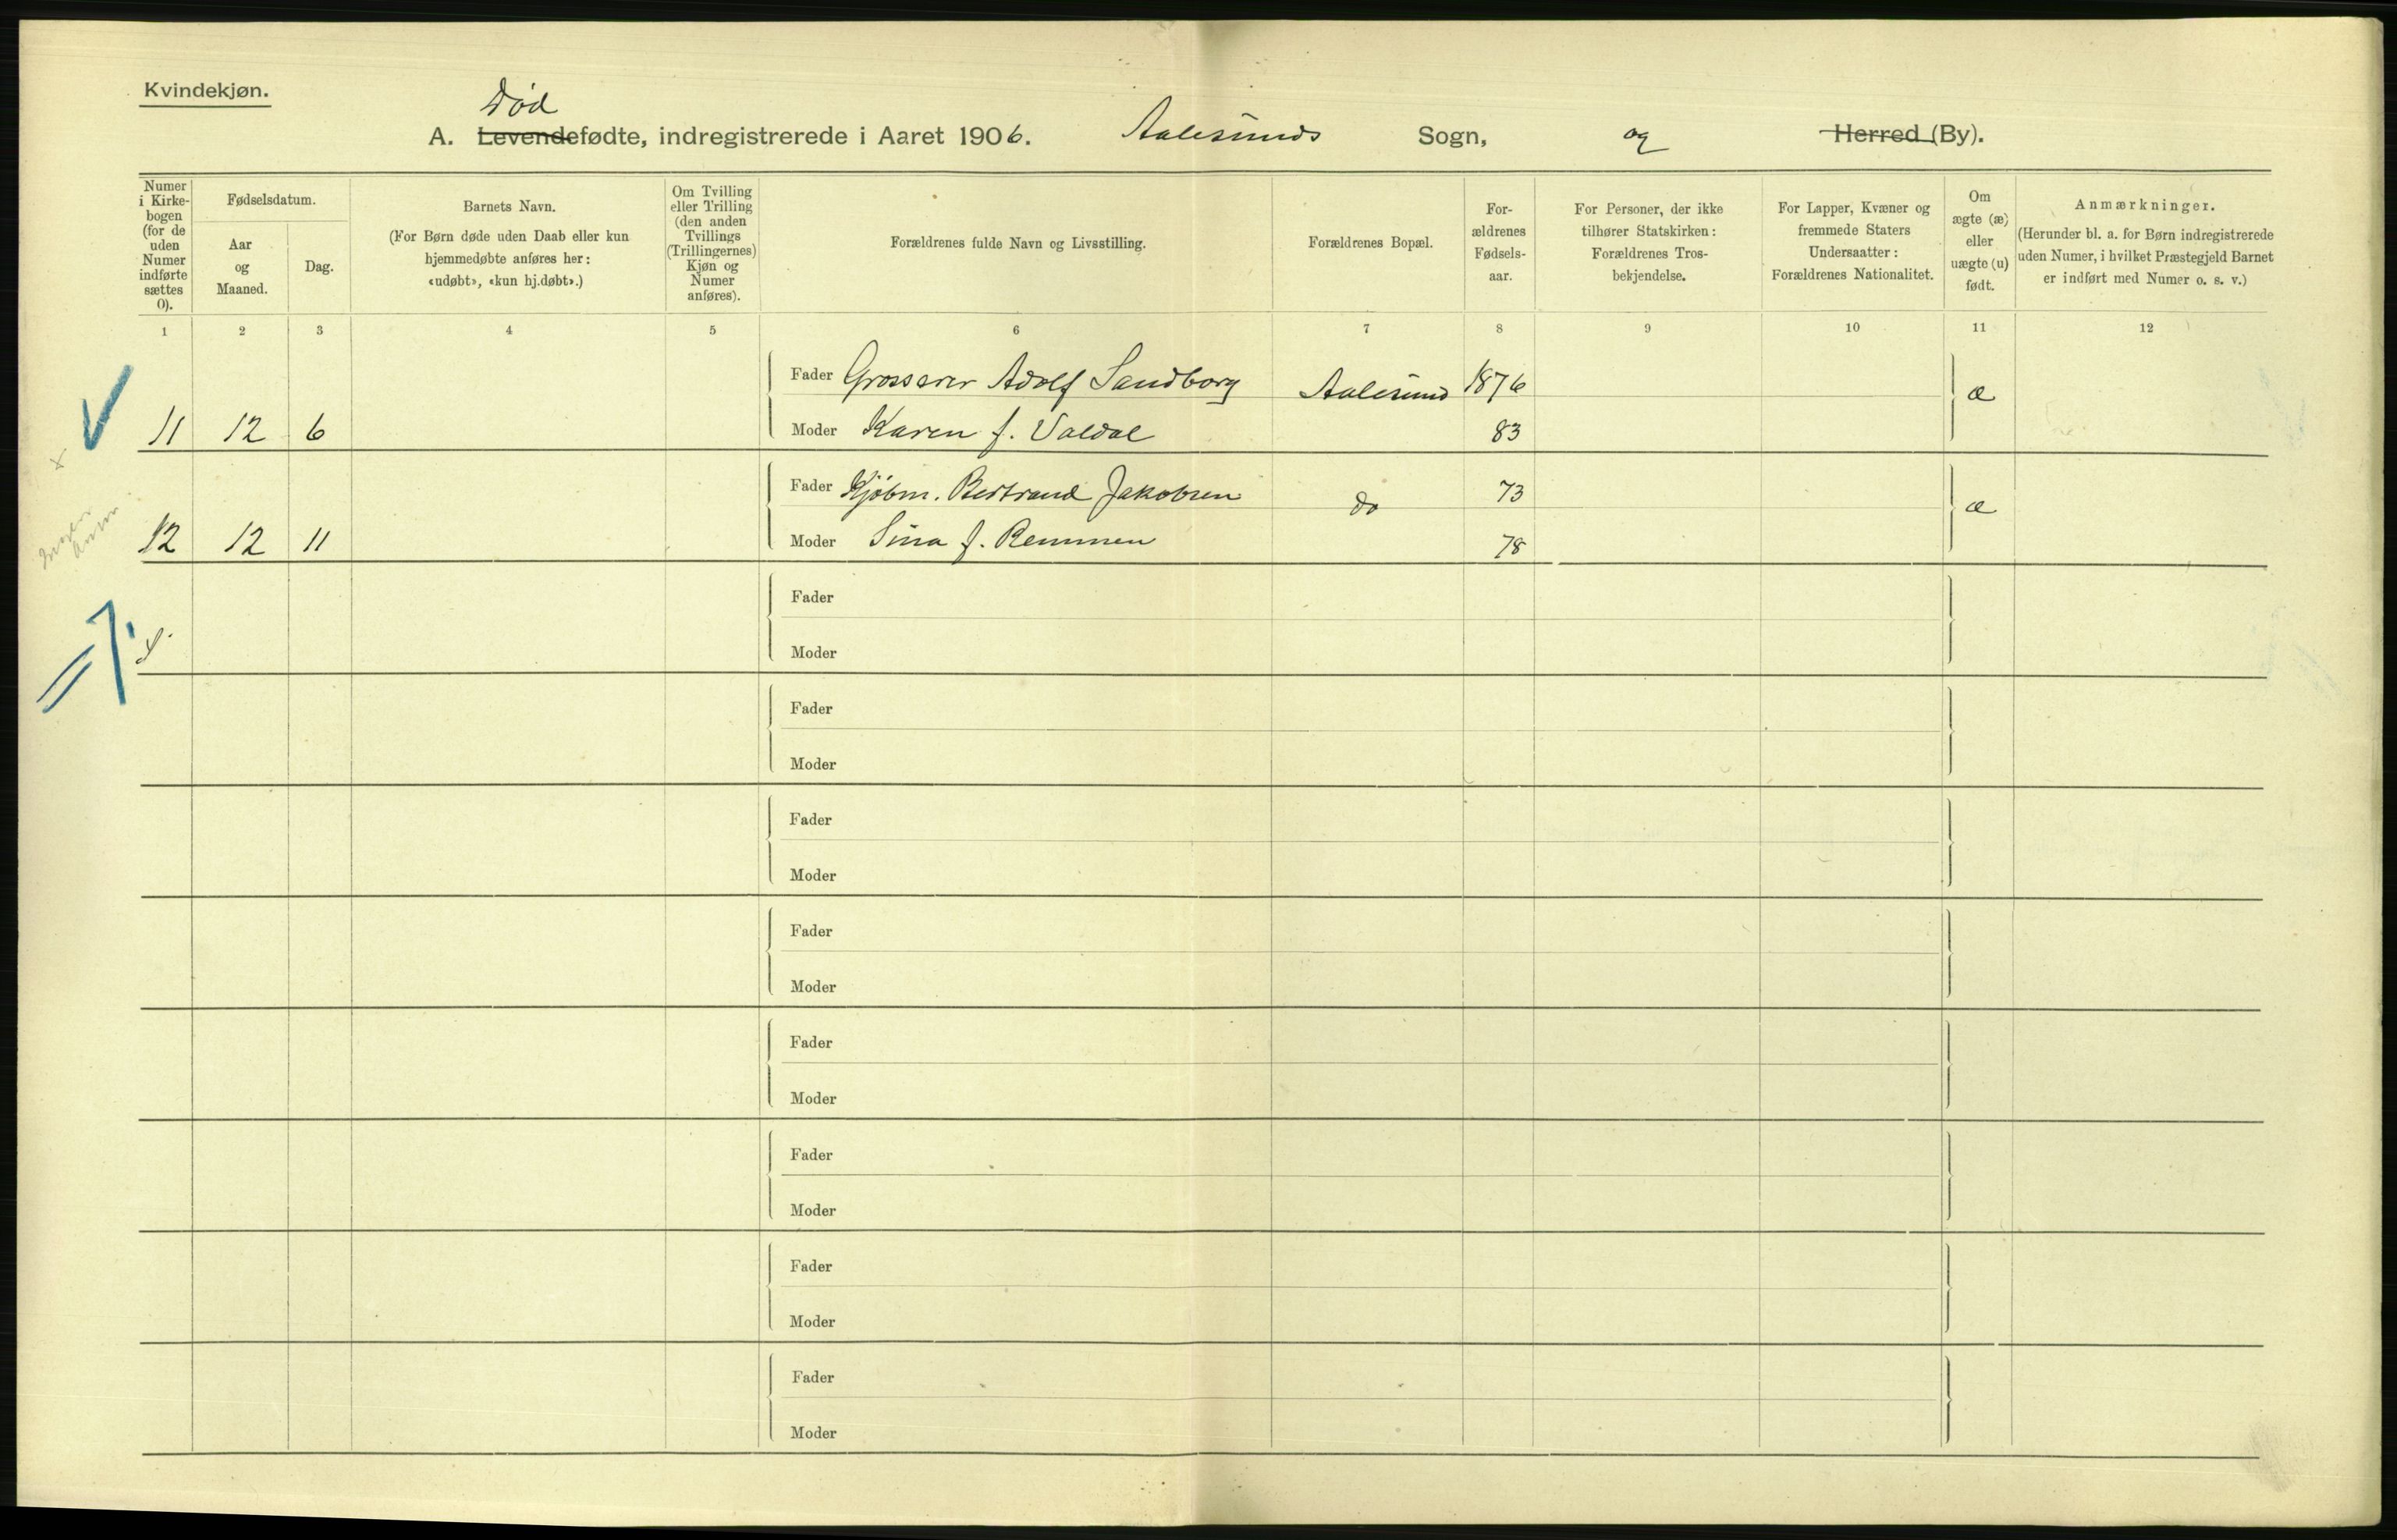 Kvindekjøn.
Død
A. Levendefødte, indregistrerede i Aaret 1906. Aalesunds Sogn, og Herred (By).
Numer i Kirkebogen (for de uden Numer indførte sættes 0).
Fødselsdatum.
Aar og Maaned.
Dag.
Barnets Navn.
(For Børn døde uden Daab eller kun
hjemmedøbte anføres her:
«udøbt», «kun hj.døbt».)
Om Tvilling
eller Trilling
(den anden
Tvillings
(Trillingernes)
Kjøn og
Numer
anføres).
Forældrenes fulde Navn og Livsstilling.
Forældrenes Bopæl.
For-
ældrenes
Fødsels-
aar.
For Personer, der ikke
tilhører Statskirken:
Forældrenes Tros-
bekjendelse.
For Lapper, Kvæner og
fremmede Staters
Undersaatter:
Forældrenes Nationalitet.
Om
ægte (æ)
eller
uægte (u)
født.
Anmærkninger.
(Herunder bl. a. for Børn indregistrerede
uden Numer, i hvilket Præstegjeld Barnet
er indført med Numer o. s. v.)
1 2 3 4 5 6 7 8 9 10 11 12
Fader Grosserer Adolf Sandborg Aalesund 1876 æ
11 12 6 Moder Karen f. Valdal 83
Fader Kjøbm. Bertrand Jakobsen do 73 æ
12 12 11 Moder Sina f. Remmen 78
Fader
Moder
Fader
Moder
Fader
Moder
Fader
Moder
Fader
Moder
Fader
Moder
Fader
Moder
Fader
Moder